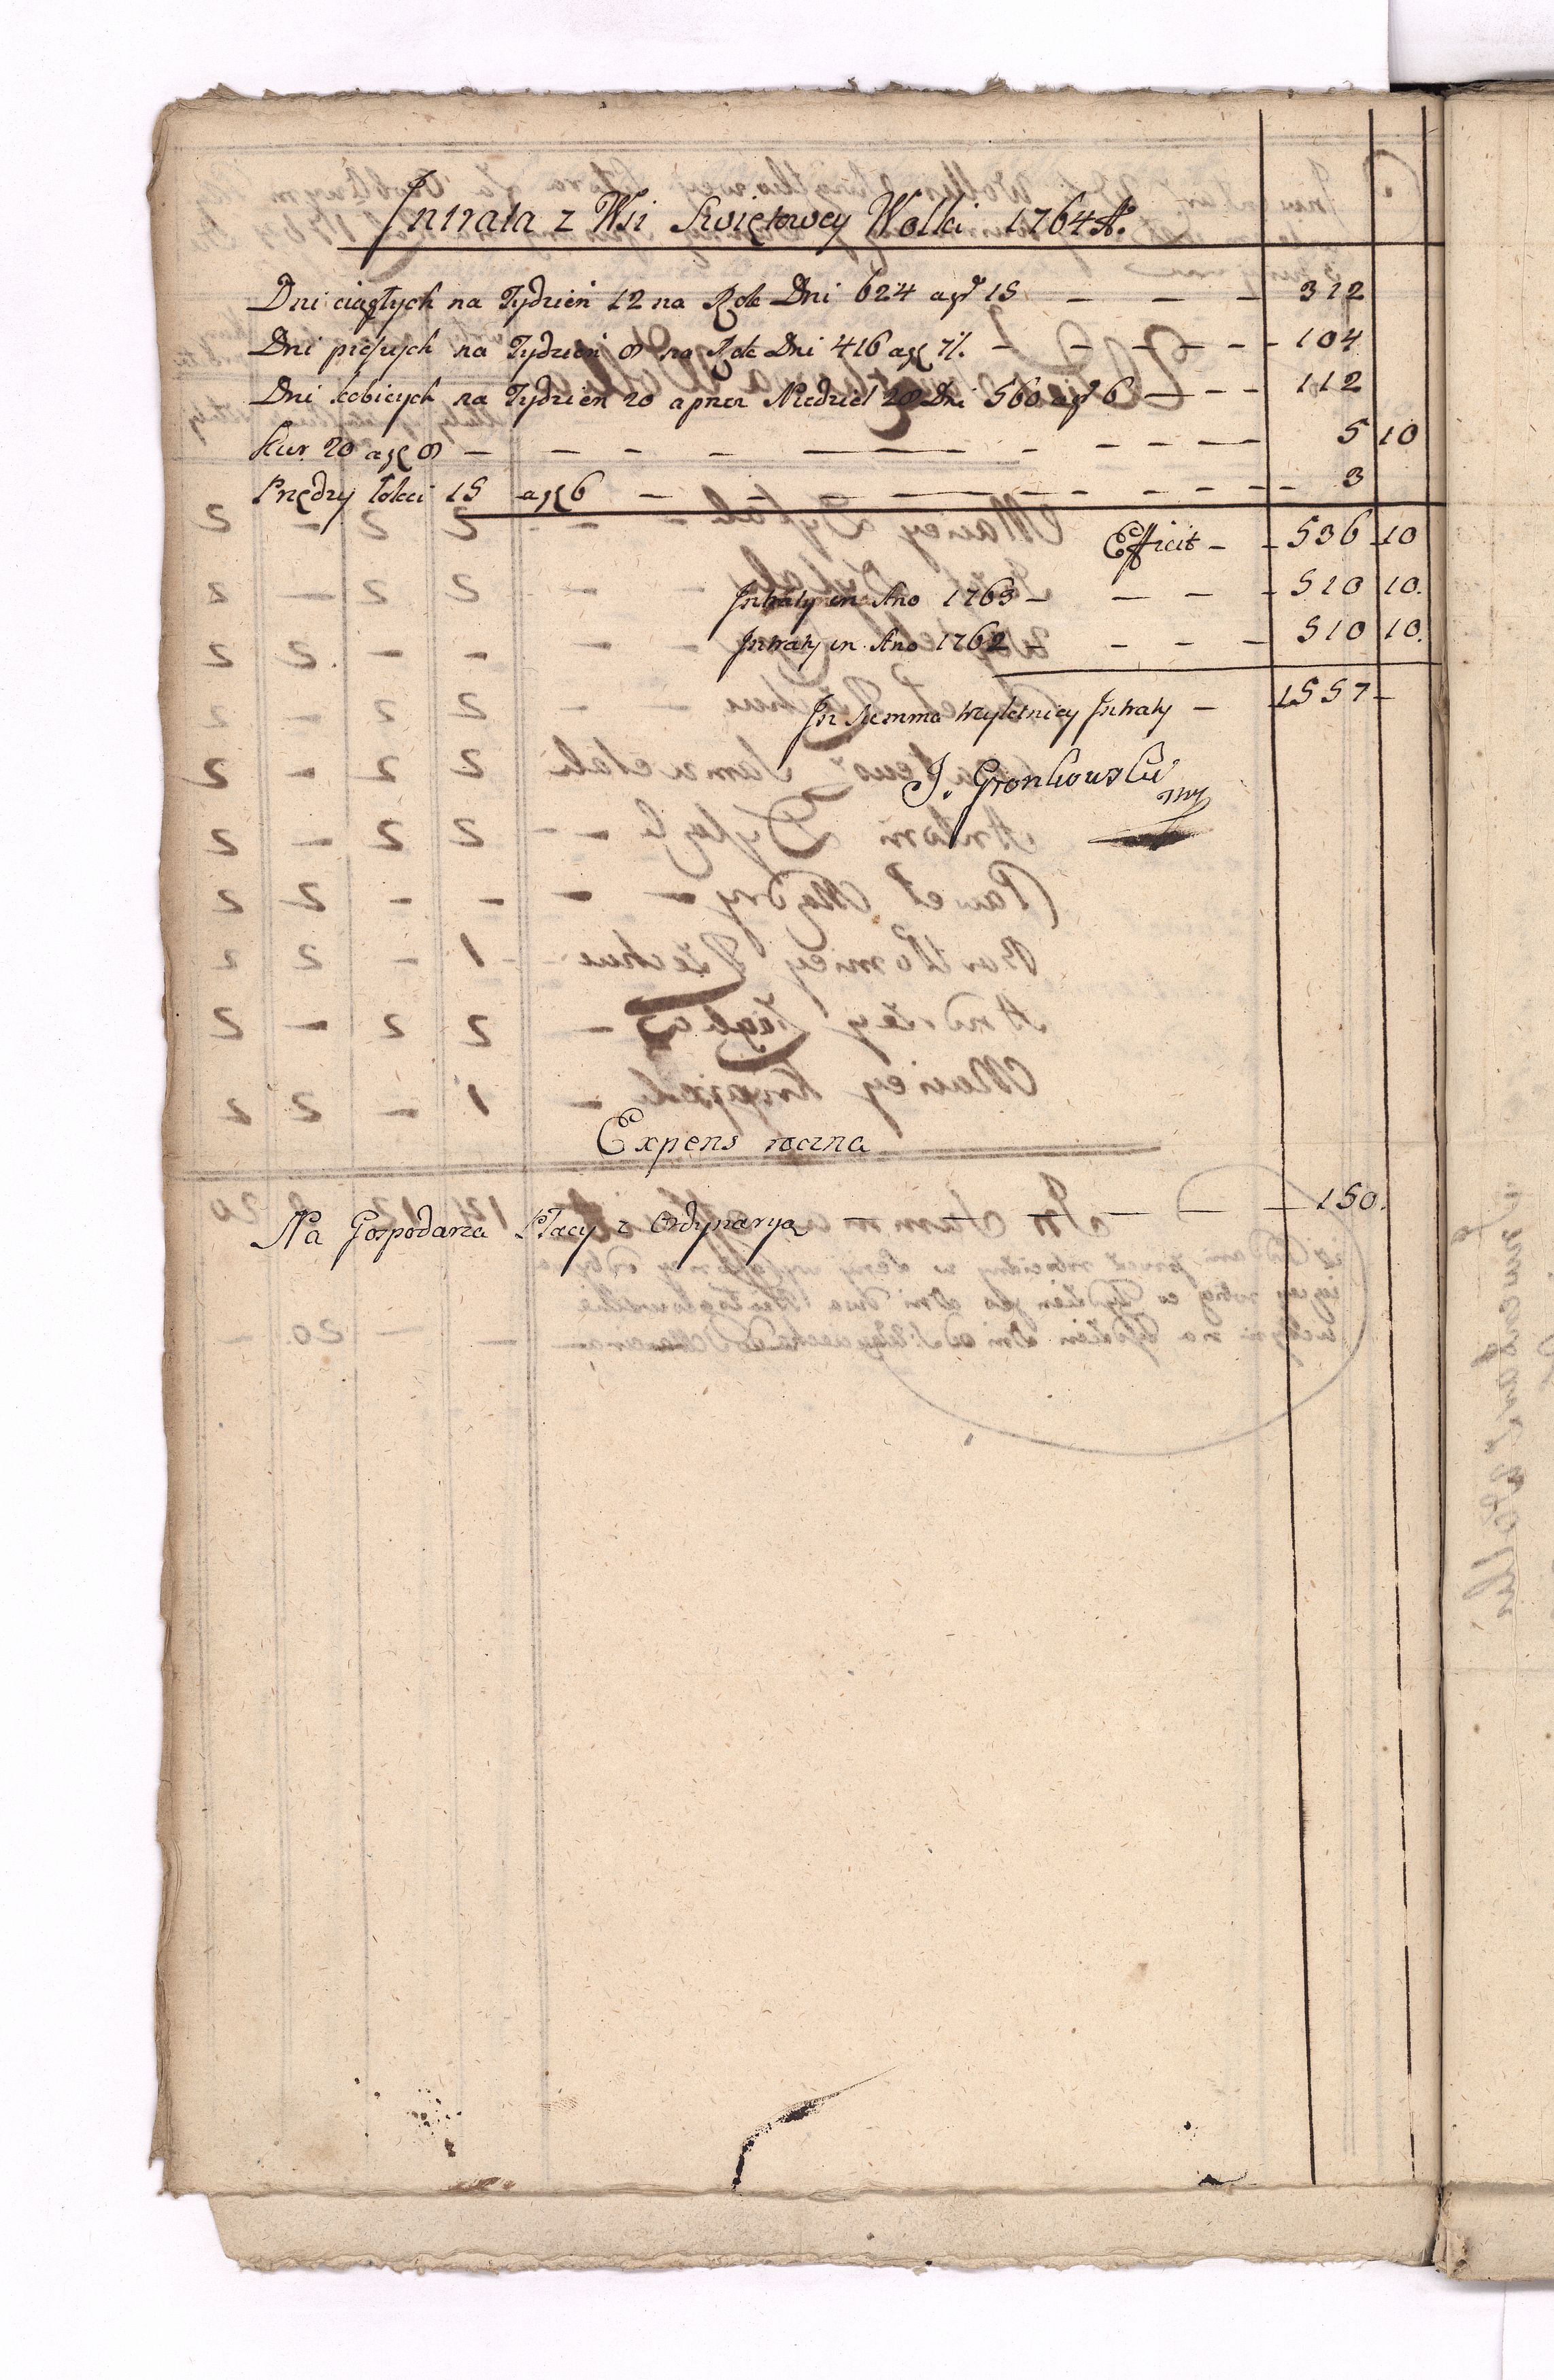 Intrata z Wsi Swiętowey Wolki 1764 A.
Dni ciągłych na Tydzień 12 na Rok Dni 624 a gr 15 — — — 312
Dni pieszych na Tydzień 8 na Rok Dni 416 a gr 7½ — — — — — 104
Dni kobiecych na Tydzień 20 a przez Niedziel 28 Dni 560 a gr 6 — — — 112
Kur 20 a gr 8 — — — — — — — — — — 5 10
Przędzy łokci 15 a gr 6 — — — — — — — — — 3
Efficit — — 536 10
Intraty in Ano 1763 — — — — 510 10.
Intraty in Ano 1762 — — — — 510 10.
In Summa trzyletniey Intraty — 1557 —
J. Gronkowski
mp
Expens roczna
Na Gospodarza Płacy z Ordynaryą — — — — — 150.